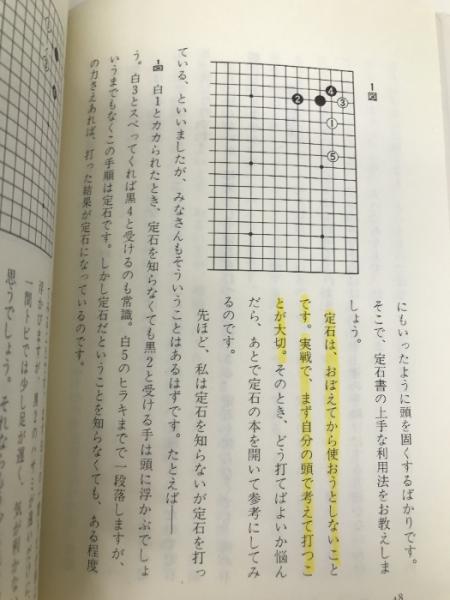 にもいったように頭を固くするばかりです。
そこで、定石書の上手な利用法をお教えしま
しょう。
定石は、おぼえてから使おうとしないこと
です。実戦で、まず自分の頭で考えて打つこ
とが大切。そのとき、どう打てばよいか悩ん
だら、あとで定石の本を開いて参考にしてみ
るのです。
先ほど、私は定石を知らないが定石を打っ
1図
4
2
3
1
5
ている、といいましたが、みなさんもそういうことはあるはずです。たとえば――
1図 白1とカカられたとき、定石を知らなくても黒2と受ける手は頭に浮かぶでしょ
う。白3とスベってくれば黒4と受けるのも常識。白5のヒラキまでで一段落しますが、
いうまでもなくこの手順は定石です。しかし定石だということを知らなくても、ある程度
の力さえあれば、打った結果が定石になっているのです。
18
浮かびますが、黒2のハサミが
一間トビでは少し足が遅く、気が利かな
思うでしょう。それなら